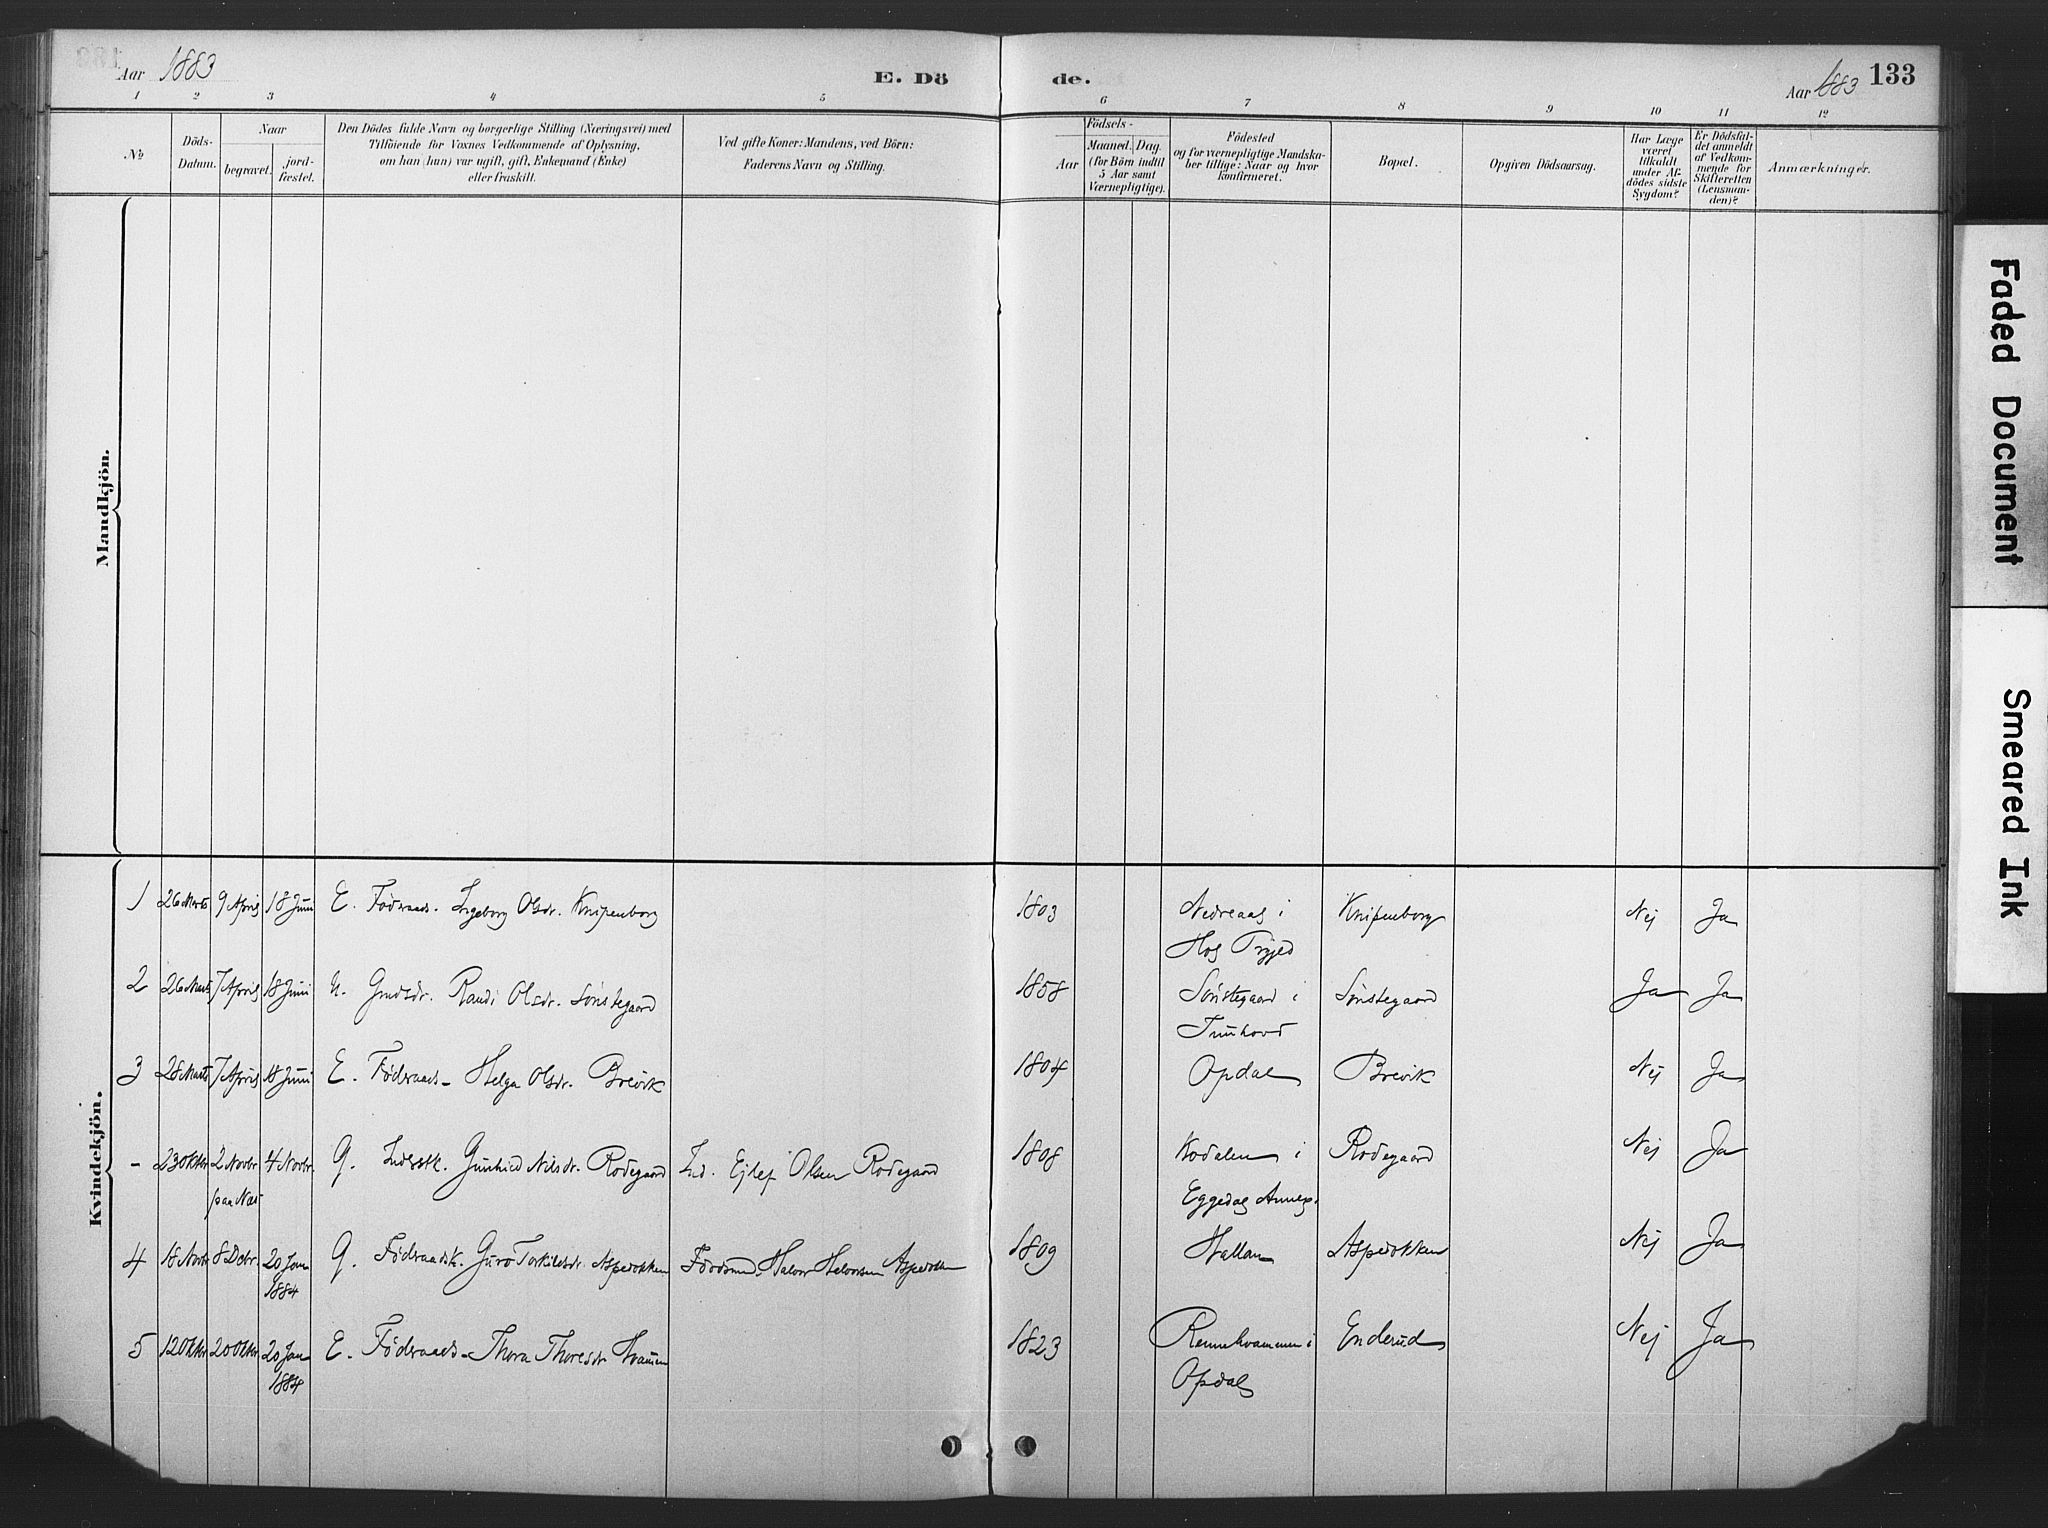 Aar 1883
E. Dö
de.
Aar 1883
133
1 2 3 4 5 6 7 8 9 10 11 12
№
Döds-
Datum.
Naar
begravet.
jord-
fæstet.
Den Dödes fulde Navn og borgerlige Stilling (Næringsvei) med
Tilföiende for Voxnes Vedkommende af Oplysning,
om han (hun) var ugift, gift, Enkemand (Enke)
eller fraskilt.
Ved gifte Koner: Mandens, ved Börn:
Faderens Navn og Stilling.
Födsels-
Aar
Maaned. Dag.
(for Börn indtil
5 Aar samt
Værnepligtige).
Födested
og for værnepligtige Mandska-
ber tillige: Naar og hvor
konfirmeret.
Bopæl.
Opgiven Dödsaarsag.
Har Læge
været
tilkaldt
under Af-
dödes sidste
Sygdom?
Er Dödsfal-
det anmeldt
af Vedkom-
mende for
Skifteretten
(Lensman-
den)?
Anmærkninger.
Mandkjön.
Kvindekjön.
1 26 Marts 9 April 18 Juni E. Föderaads. Ingeborg Olsdr. Knipenborg 1803 Nedreaas i Knipenborg Nej Ja
Hos
2 26 Marts 7 April 18 Juni U. Gmdsdr. Randi Olsdr. Sönstegaard 1858 Sönstegaard i Sönstegaard Ja Ja
Tunhovd
3 28 Marts 7 April 18 Juni E. Föderaads- Helga Olsdr. Brevik 1804 Opdal Brevik Nej Ja
- 23 Oktbr 2 Novbr 4 Novbr. G. Inderstk. Gunhild Nilsdr. Rodegaard Ind. Ejlef Olsen Rodegaard 1808 Kodalen i Rodegaard Nej Ja
paa Næs
Eggedal Annex.
4 18 Novbr 8 Debr. 20 Jan G. Föderaadsk. Guro Torkildsdr. Aspedokken Födrdsmd. Halvor Halvorsen Aspedokken 1809 Hallan Aspedokken Nej Ja
1884
5 12 Oktbr 20 Oktbr. 20 Jan E. Föderaads- Thora Thoresdr Hvammen 1823 Rennehvammen i Enderud Nej Ja
1884
Opdal
Faded Document
Smeared Ink